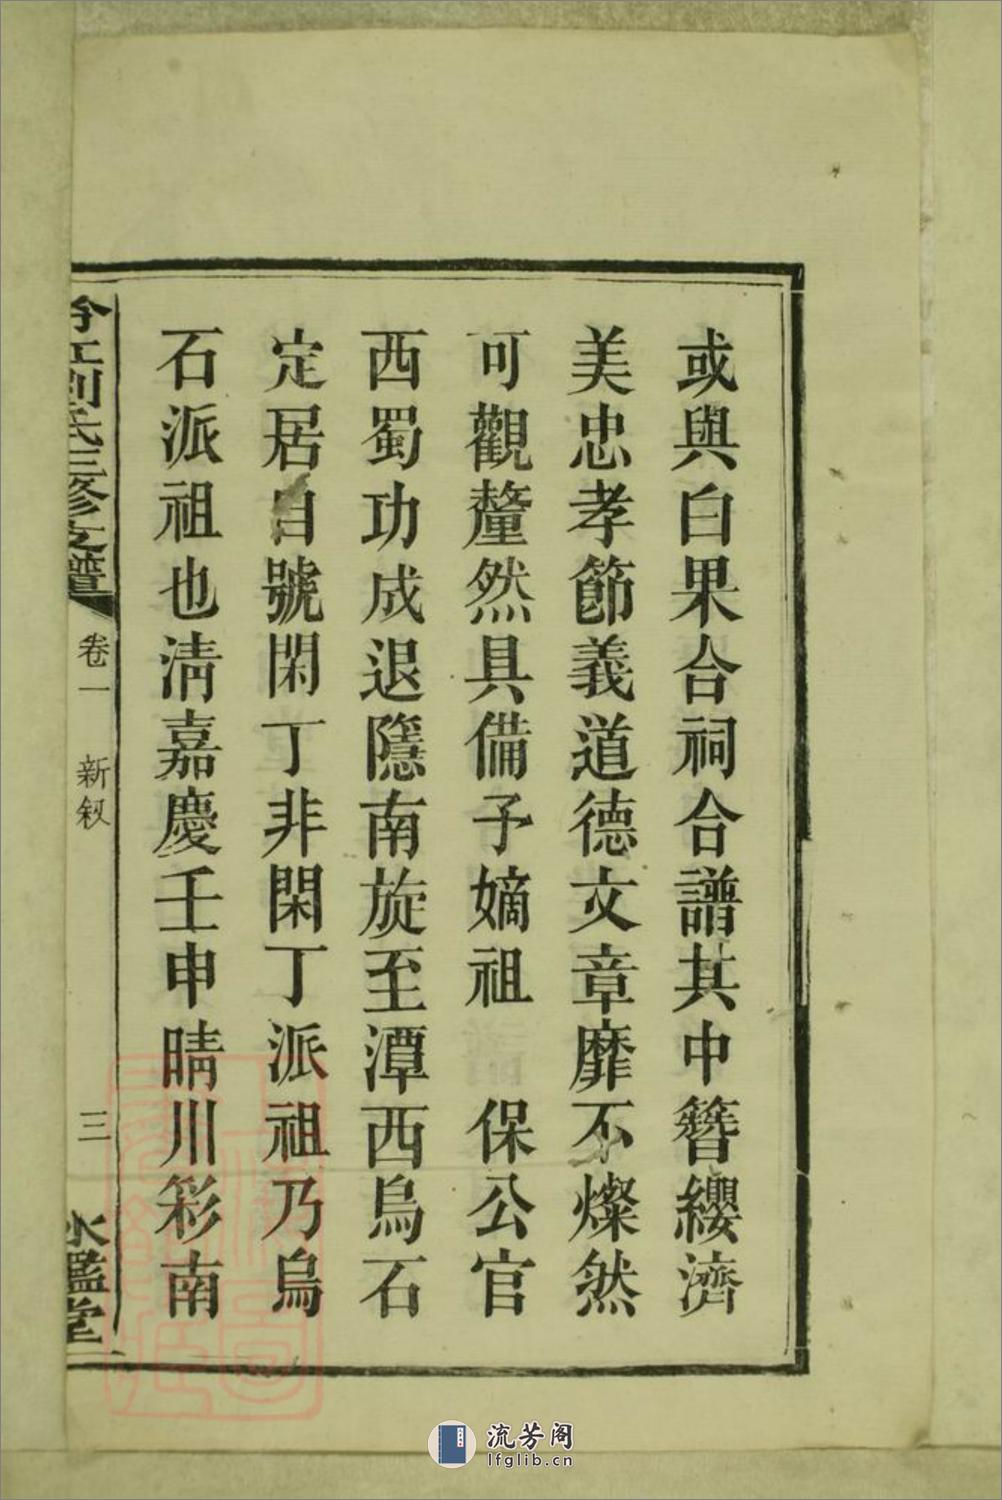 或與白果合祠合譜其中簪纓濟
美忠孝節義道德文章靡不燦然
可觀釐然具備予嫡祖　保公官
西蜀功成退隱南旋至潭西烏石
定居自號閑丁非閑丁派祖乃烏
石派祖也清嘉慶壬申晴川彩南
江劉氏三修支譜
卷一　新敘
三
水鑑堂
流芳阁
lfglib.cn